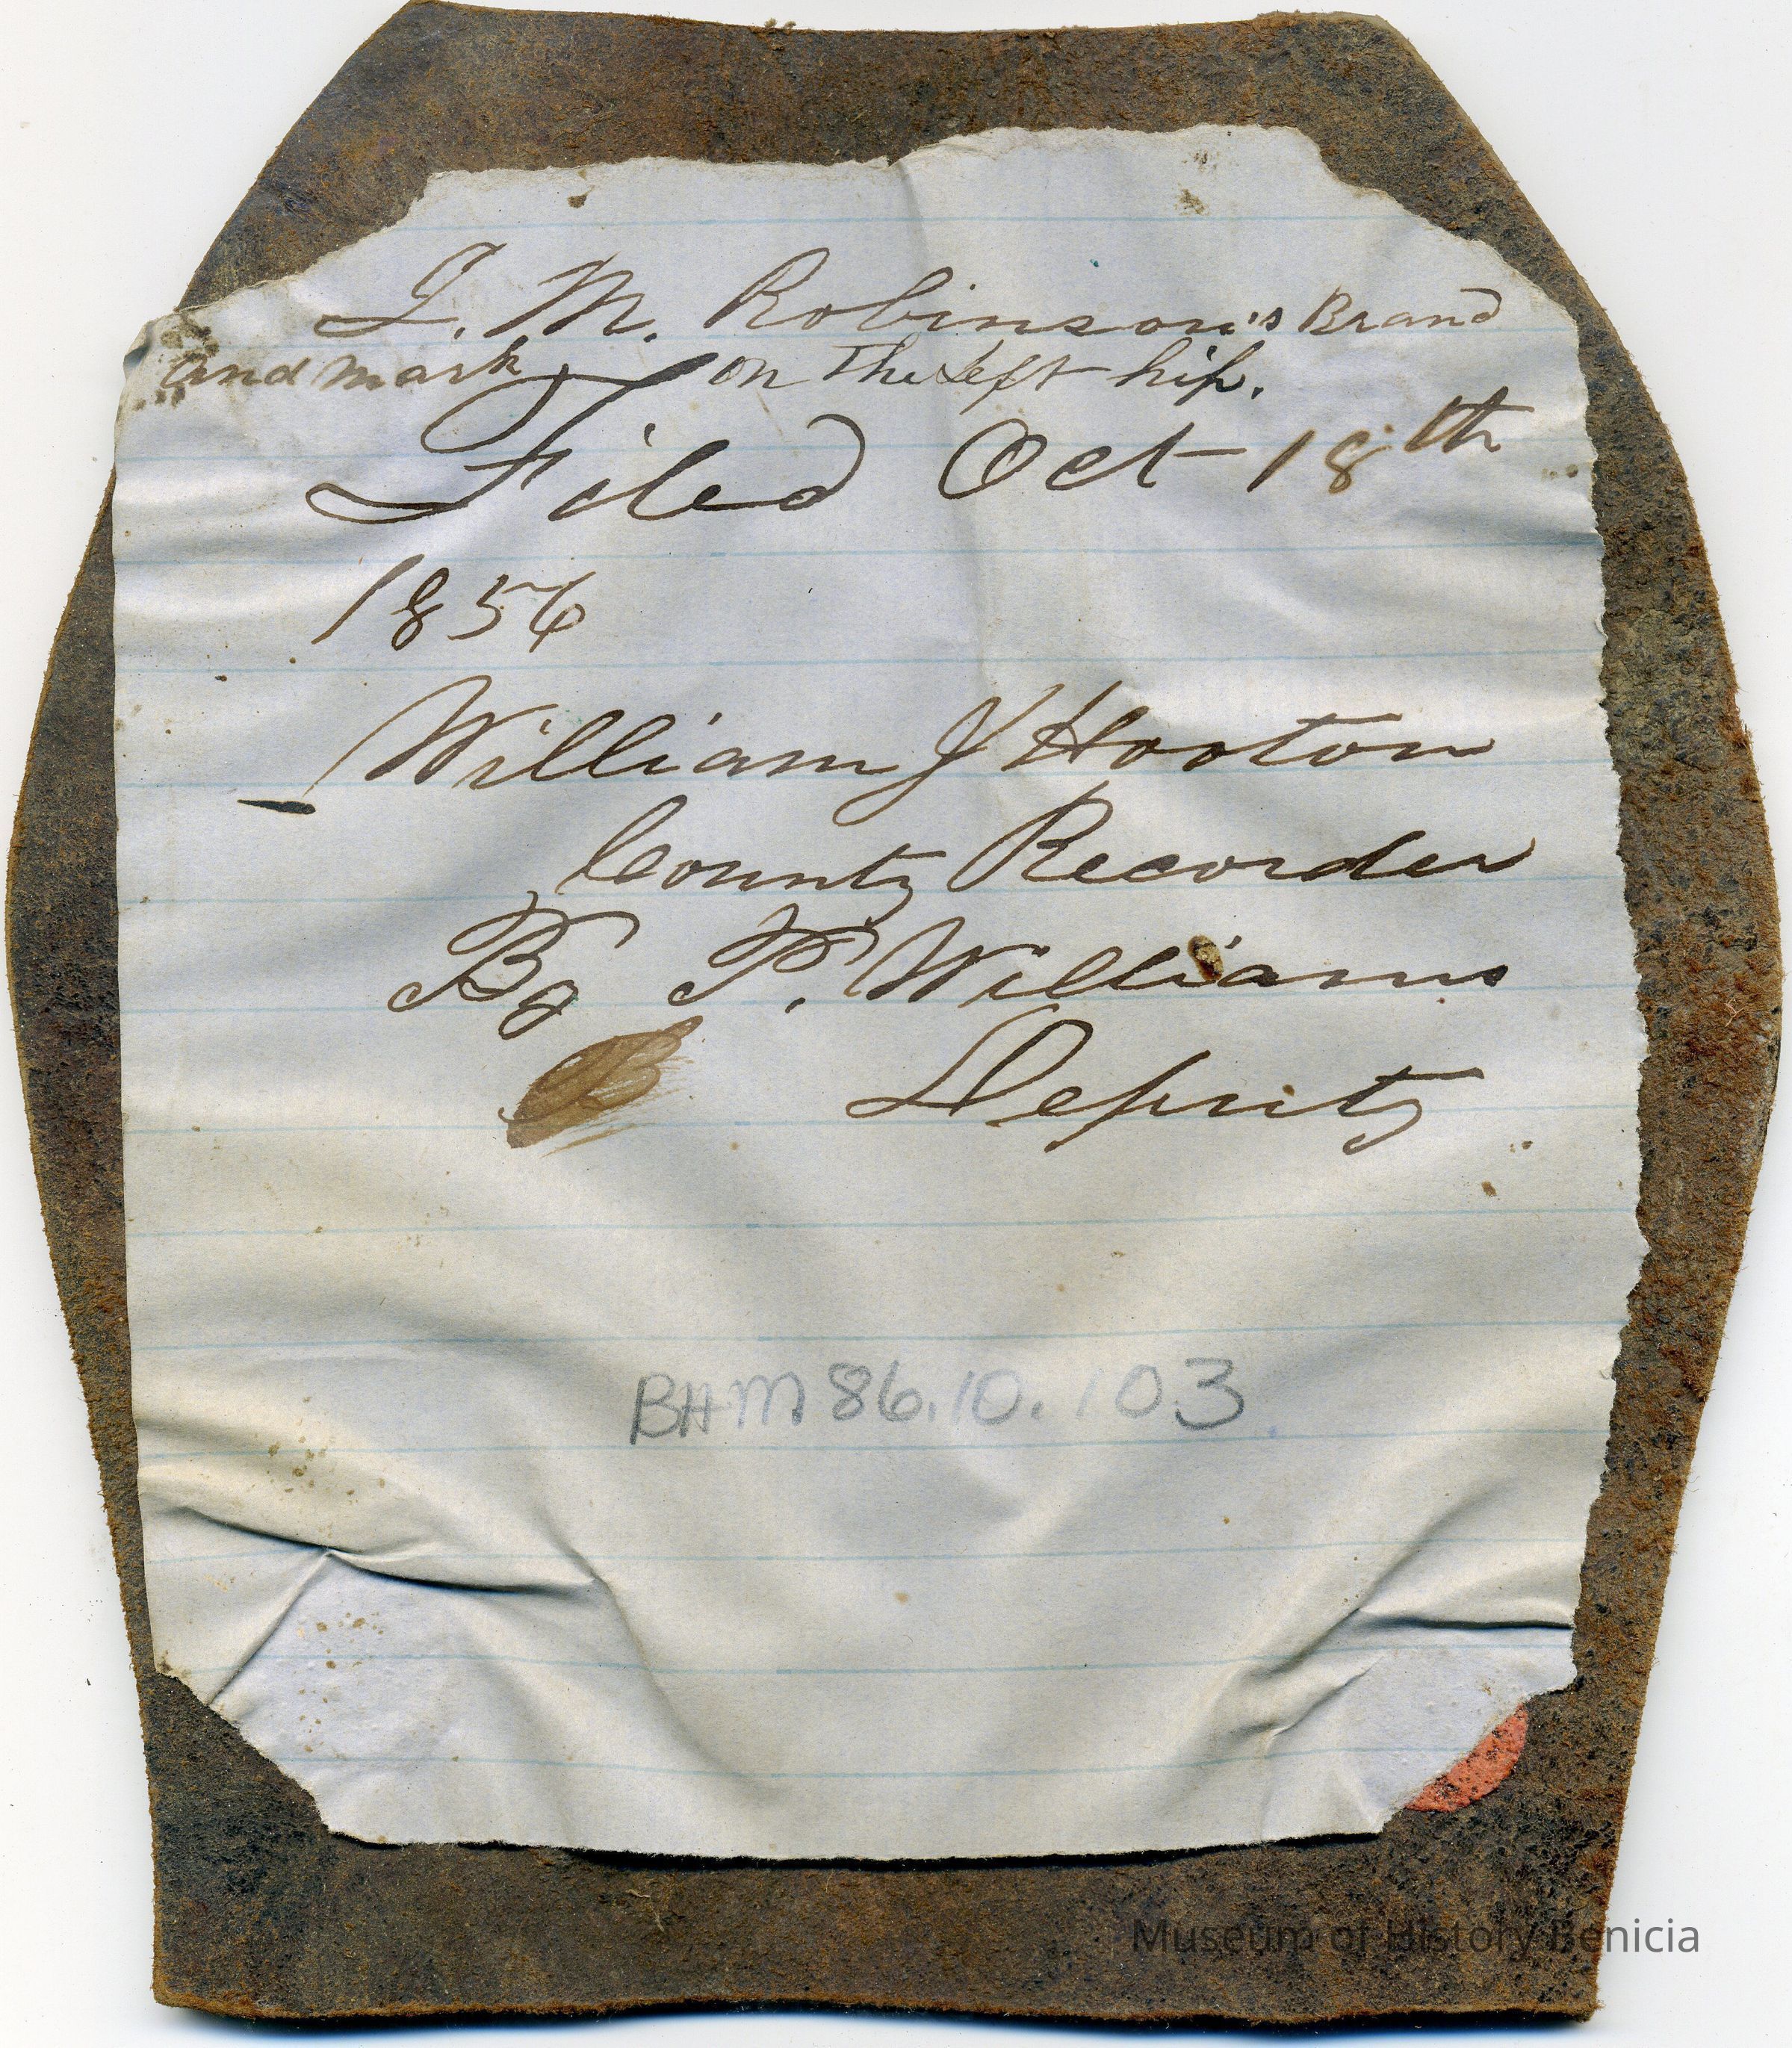 J. M. Robinson's Brand
and mark, on the Left hip.
Filed Oct 18th
1856
William J Hooton
County Recorder
By P. Williams
Deputy
BHM 86.10.103
Museum of History Benicia